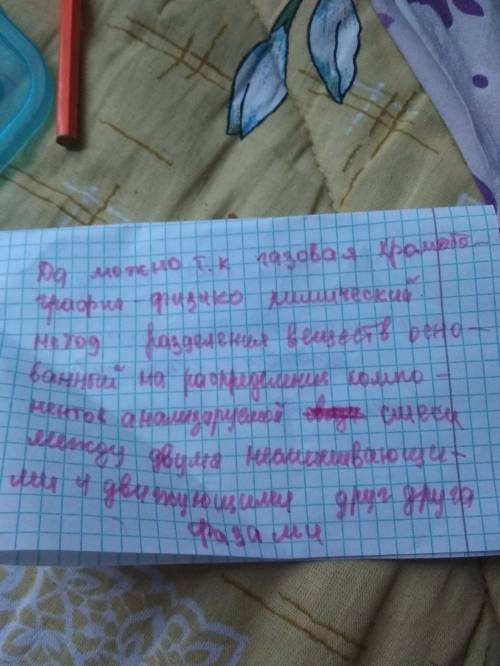 Да можно т.к газовая хромато-
графия - физико химический
метод разделения веществ осно-
ванный на распределении компо-
нентов анализируемой смеси
между двума несмешивающи-
ми и движующими друг друга
фазами